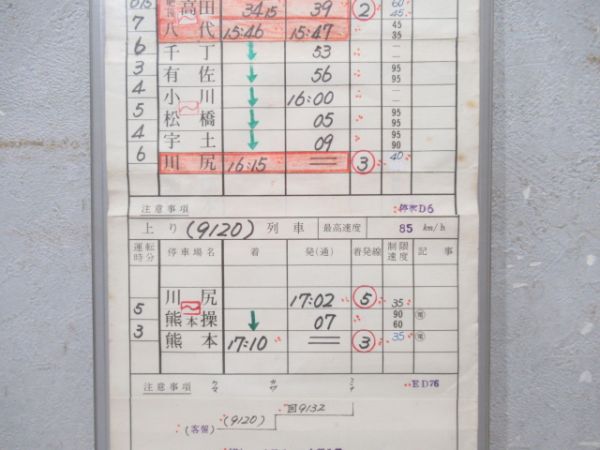 015 高田 34 15 39 2 60 45
7 八代 15:46 15:47 45 35
6 千丁 ↓ 53 — —
3 有佐 ↓ 56 95 95
4 小川 ↓ 16:00 — —
5 松橋 ↓ 05 95 95
4 宇土 ↓ 09 95 90
6 川尻 16:15 == 3 40
注意事項 D6
上り (9120) 列車 最高速度 85 km/h
運転時分 停車場名 着 発(通) 着発線 制限速度 記事
川尻 17:02 5 35
5 熊本操 ↓ 07 90 60
3 熊本 17:10 == 3 35
注意事項 ED76
(客留) (9120) 回9132